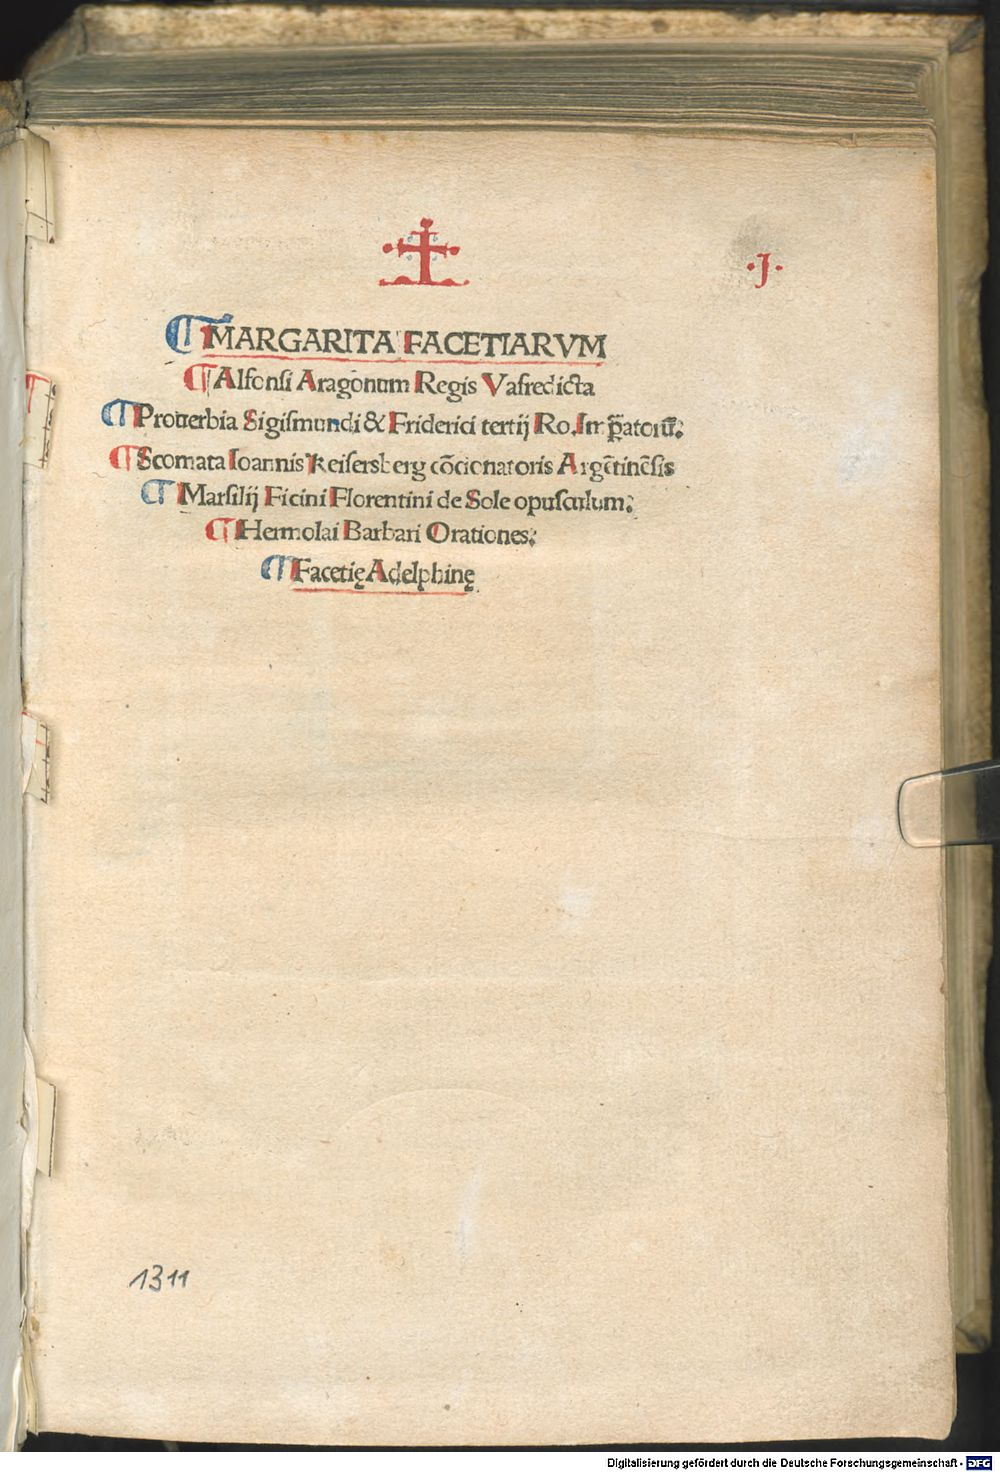 ·J·
¶ MARGARITA FACETIARVM
¶ Alfonsi Aragonum Regis Vafredicta
¶ Prouerbia Sigismundi & Friderici tertij Ro. Imp̲atorū:
¶ Scomata Ioannis Keisersberg cōcionatoris Argētinēsis
¶ Marsilij Ficini Florentini de Sole opusculum:
¶ Hermolai Barbari Orationes:
¶ Facetię Adelphinę
1311
Digitalisierung gefördert durch die Deutsche Forschungsgemeinschaft - DFG